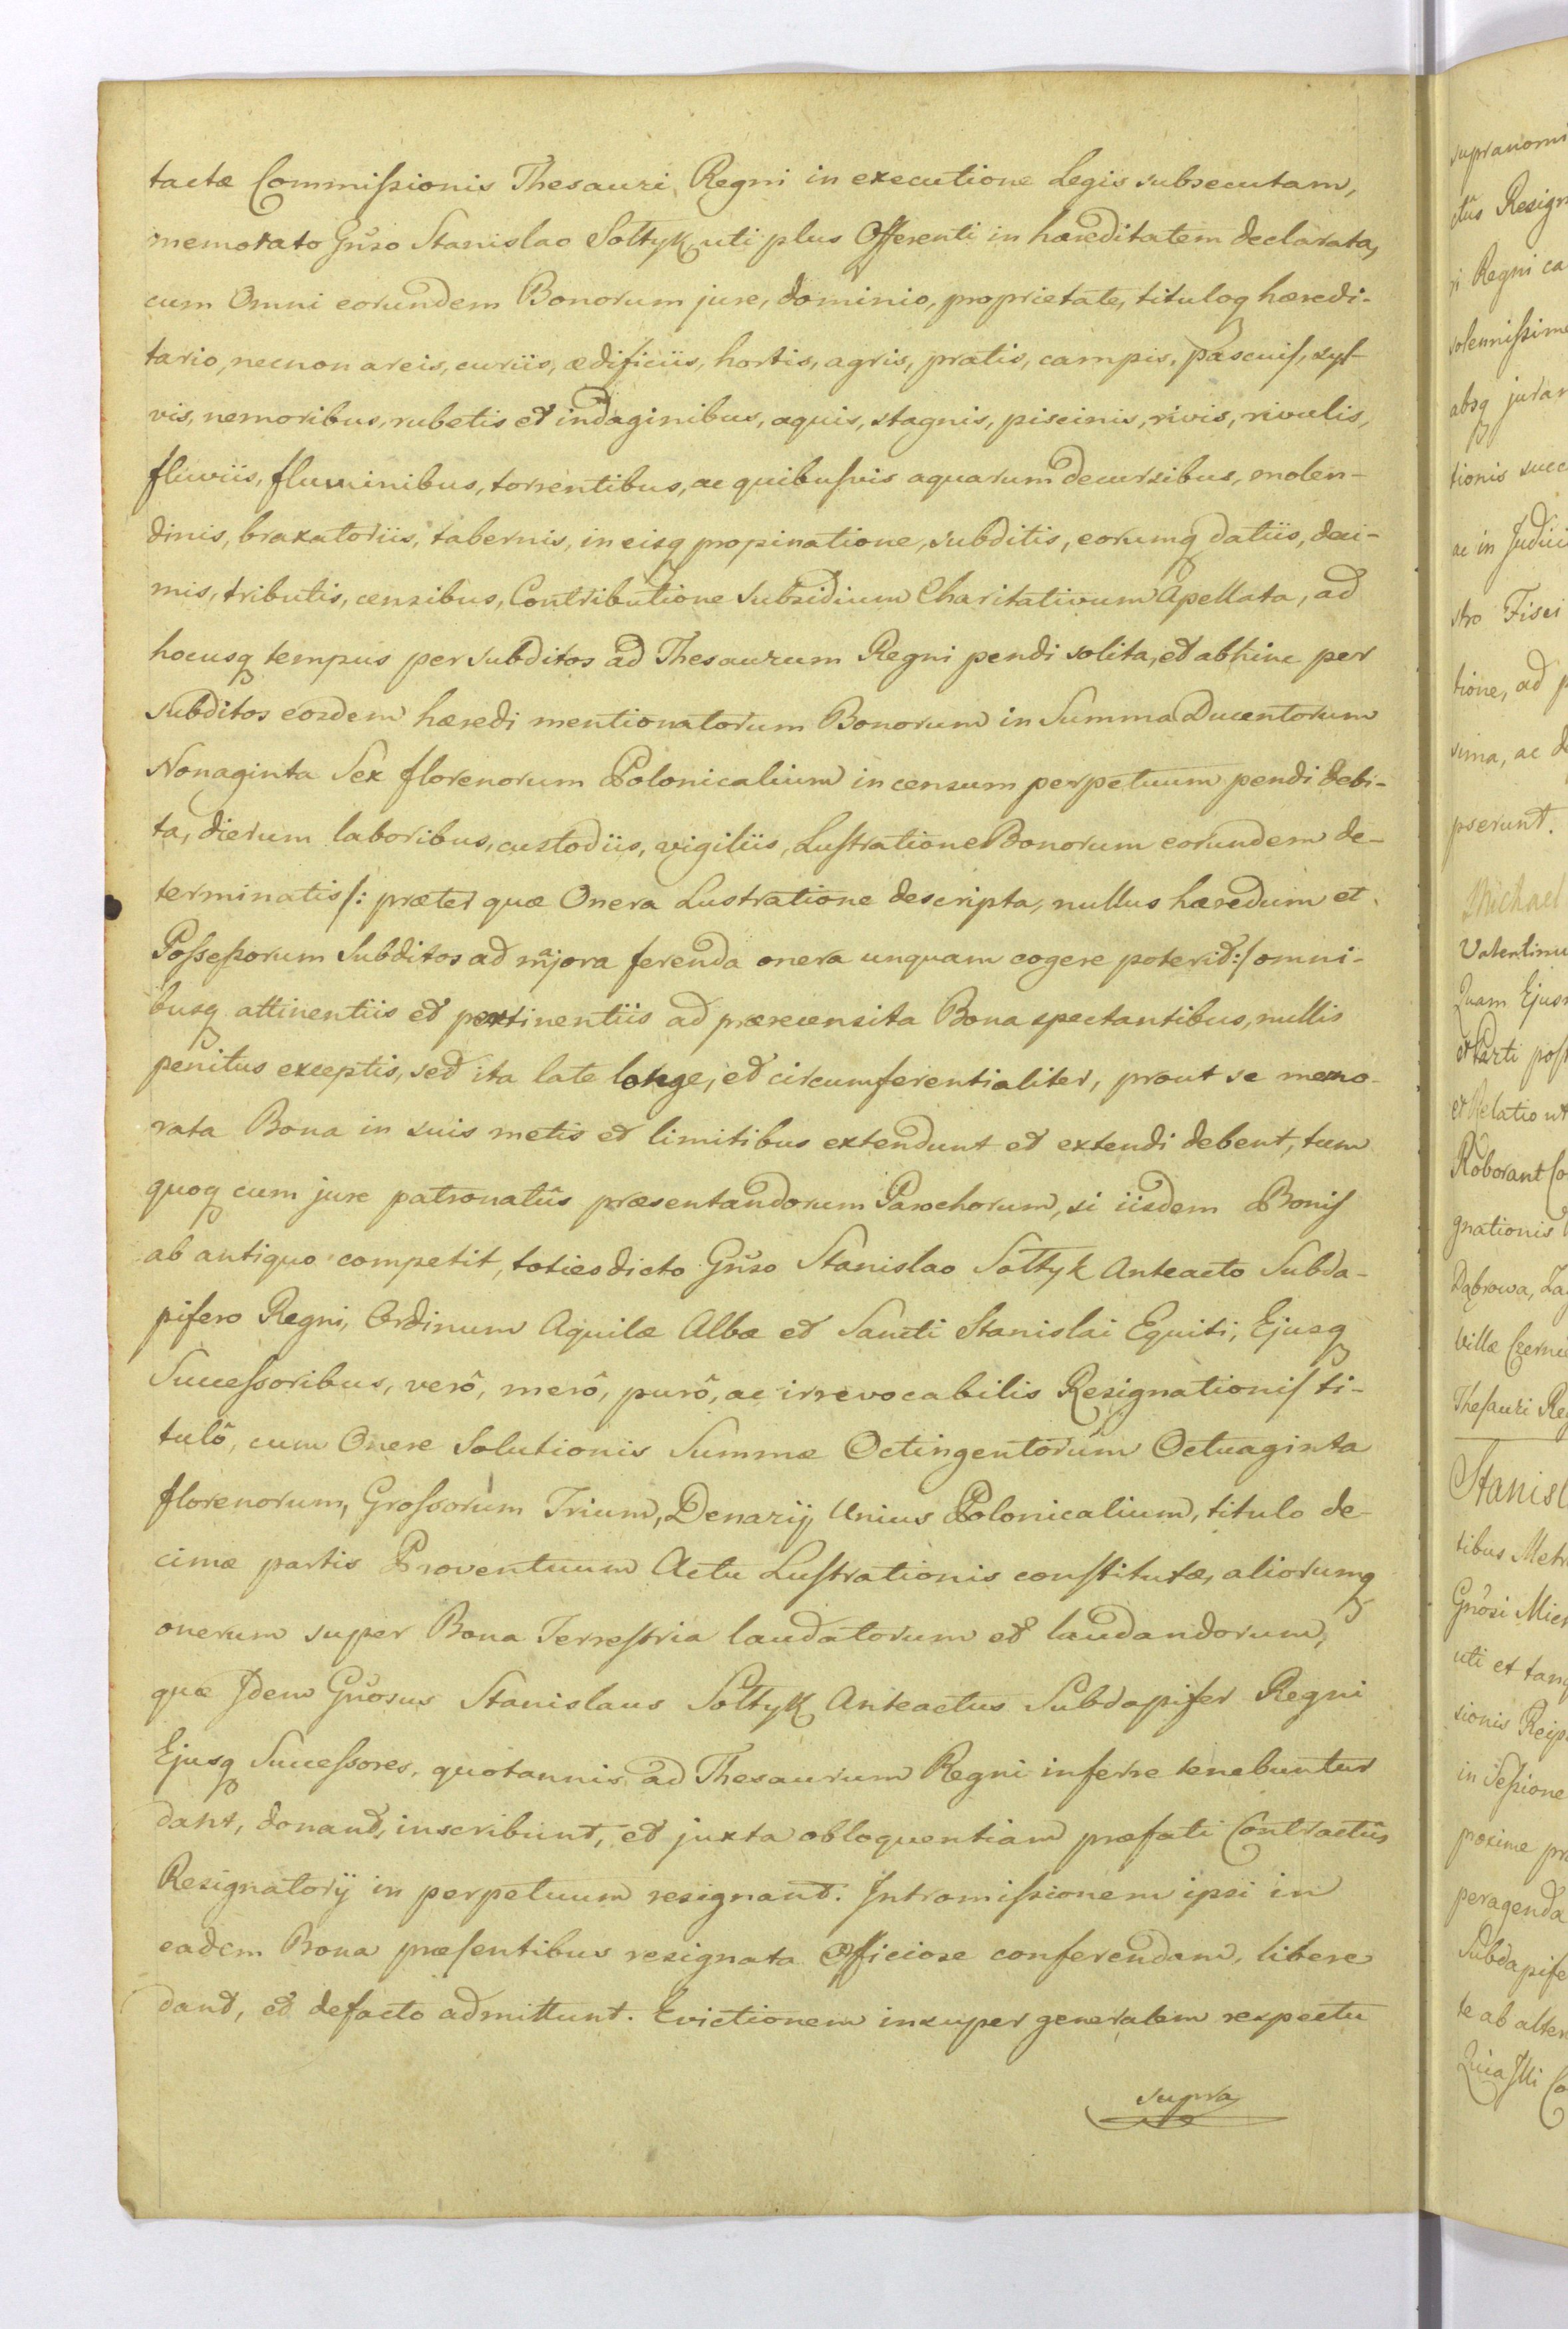 tactæ Commissionis Thesauri Regni in executione Legis subsecutam,
memorato Gnŕso Stanislao Soltyk uti plus Offerenti in hæreditatem declarata,
cum Omni eorundem Bonorum jure, dominio, proprietate, tituloq hæredi-
tario, necnon areis, curiis, ædificiis, hortis, agris, pratis, campis, pascuis, syl-
vis, nemoribus, rubetis et indaginibus, aquis, stagnis, piscinis, rivis, rivulis,
fluviis, fluminibus, torrentibus, ac quibusvis aquarum decursibus, molen-
dinis, braxatoriis, tabernis, in eisq propinatione, subditis, eorumq datiis, deci-
mis, tributis, censibus, Contributione Subsidium Charitativum Apellata, ad
hocusq tempus per subditos ad Thesaurum Regni pendi solita, et abhinc per
subditos eosdem hæredi mentionatorum Bonorum in Summa Ducentorum
Nonaginta Sex florenorum Polonicalium in censum perpetuum pendi debi-
ta, dierum laboribus, custodiis, vigiliis, Lustratione Bonorum eorundem de-
terminatis /: præter quæ Onera Lustratione descripta, nullus hæredum et
Possessorum Subditos ad majora ferenda onera unquam cogere poterit :/ omni-
busq attinentiis et pertinentiis ad præreciensita Bona spectantibus, nullis
penitus exceptis, sed ita late longe, et circumferentialiter, prout se memo-
rata Bona in suis metis et limitibus extendunt et extendi debent, tum
quoq cum jure patronatûs præsentandorum Parochorum, si iisdem Bonis
ab antiquo competit, toties dicto Gnŕso Stanislao Soltyk Anteacto Subda-
pifero Regni, Ordinum Aquilæ Albæ et Sancti Stanislai Equiti, Ejusq
Successoribus, verô, merô, purô, ac irrevocabilis Resignationis ti-
tulô, cum Onere Solutionis Summæ Octingentorum Octuaginta
florenorum, Grossorum Trium, Denarij Unius Polonicalium, titulo de-
cimæ partis Proventuum Actu Lustrationis constitutæ, aliorumq
onerum super Bona Terrestria laudatorum et laudandorum,
quæ Idem Gnŕosus Stanislaus Soltyk Anteactus Subdapifer Regni
Ejusq Successores, quotannis ad Thesaurum Regni inferre tenebuntur
dant, donant, inscribunt, et juxta obloquentiam præfati Contractûs
Resignatorij in perpetuum resignant. Intromissionem ipsi in
eadem Bona præsentibus resignata Officiose conferendam, libere
dant, et defacto admittunt. Evictionem insuper generalem respectu
supra